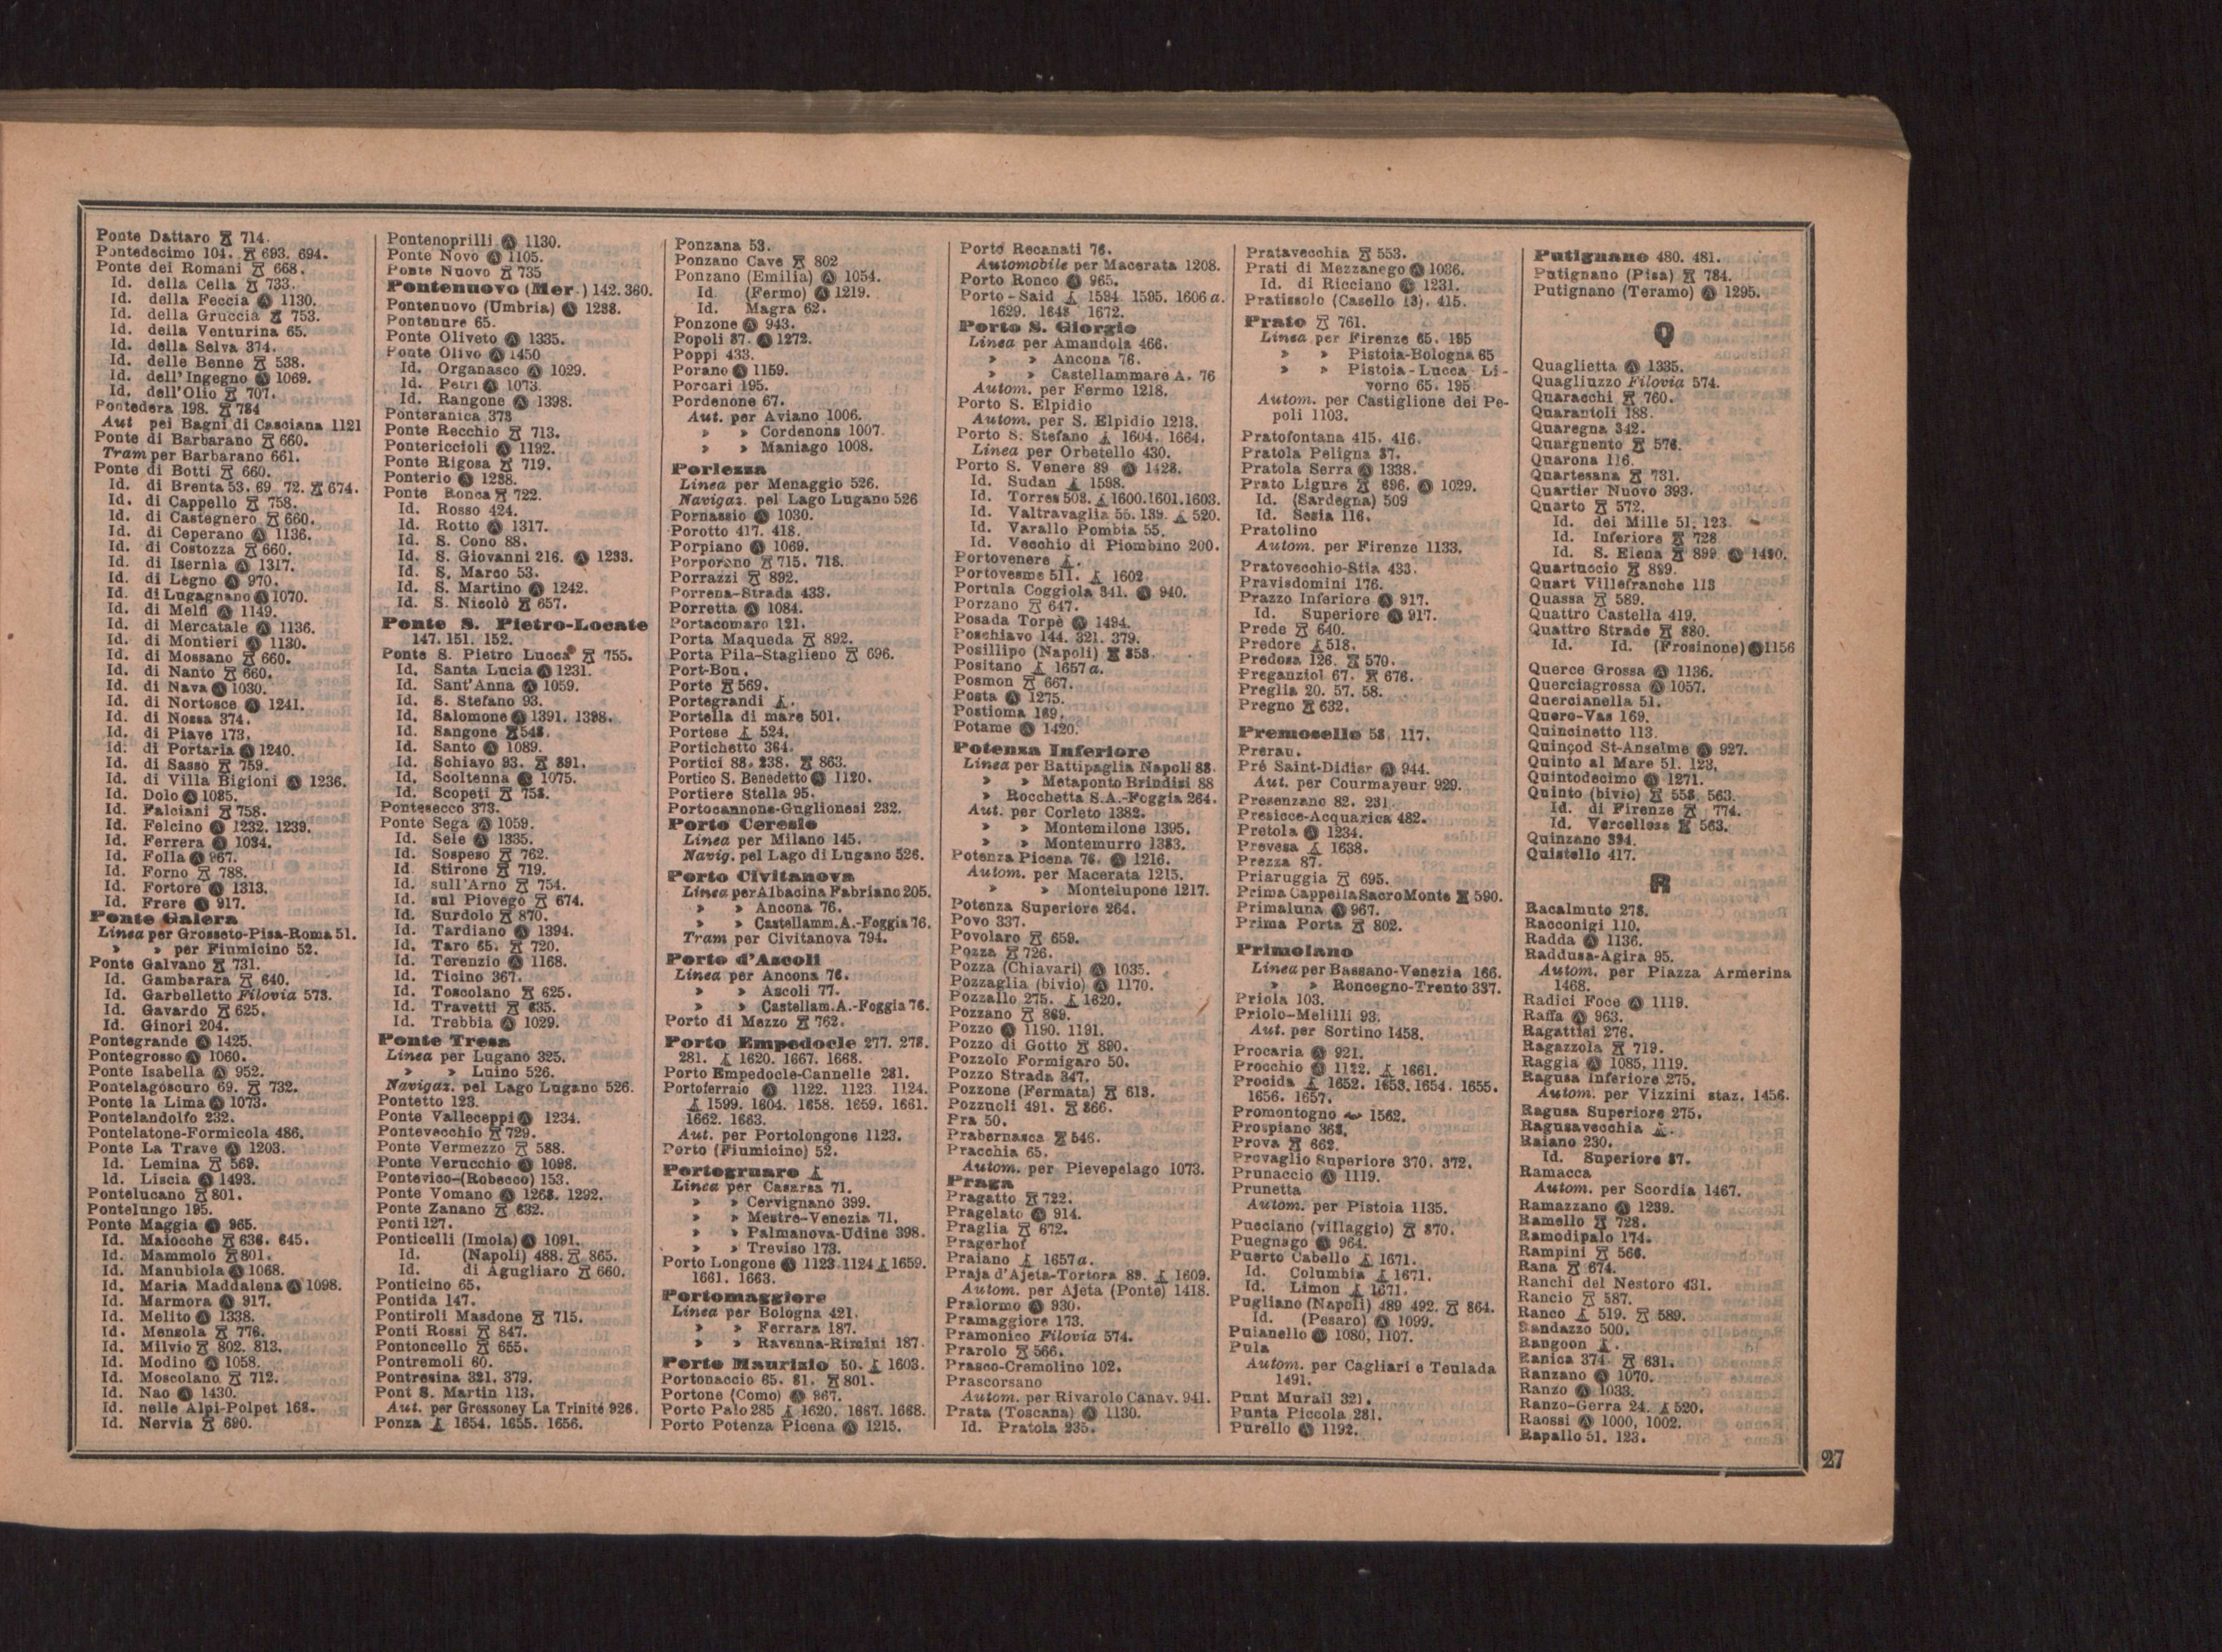 Ponte Dattaro 714.
Pontedecimo 104. 693. 694.
Ponte dei Romani 668.
Id. della Cella 733.
Id. della Feccia Ⓐ 1130.
Id. della Gruccia 753.
Id. della Venturina 65.
Id. della Selva 374.
Id. delle Benne 538.
Id. dell'Ingegno Ⓐ 1069.
Id. dell'Olio 707.
Pontedera 198. 784
Aut pei Bagni di Casciana 1121
Ponte di Barbarano 660.
Tram per Barbarano 661.
Ponte di Botti 660.
Id. di Brenta 53. 69 72. 674.
Id. di Cappello 758.
Id. di Castegnero 660.
Id. di Ceperano Ⓐ 1136.
Id. di Costozza 660.
Id. di Isernia Ⓐ 1317.
Id. di Legno Ⓐ 970.
Id. di Lugagnano Ⓐ 1070.
Id. di Melfi Ⓐ 1149.
Id. di Mercatale Ⓐ 1136.
Id. di Montieri Ⓐ 1130.
Id. di Mossano 660.
Id. di Nanto 660.
Id. di Nava Ⓐ 1030.
Id. di Nortosce Ⓐ 1241.
Id. di Nossa 374.
Id. di Piave 173.
Id. di Portaria Ⓐ 1240.
Id. di Sasso 759.
Id. di Villa Bigioni Ⓐ 1236.
Id. Dolo Ⓐ 1085.
Id. Falciani 758.
Id. Felcino Ⓐ 1232. 1239.
Id. Ferrera Ⓐ 1034.
Id. Folla Ⓐ 967.
Id. Forno 788.
Id. Fortore Ⓐ 1313.
Id. Frere Ⓐ 917.
Ponte Galera
Linea per Grosseto-Pisa-Roma 51.
» » per Fiumicino 52.
Ponte Galvano 731.
Id. Gambarara 640.
Id. Garbelletto Filovia 573.
Id. Gavardo 625.
Id. Ginori 204.
Pontegrande Ⓐ 1425.
Pontegrosso Ⓐ 1060.
Ponte Isabella Ⓐ 952.
Pontelagoscuro 69. 732.
Ponte la Lima Ⓐ 1073.
Pontelandolfo 232.
Pontelatone-Formicola 486.
Ponte La Trave Ⓐ 1203.
Id. Lemina 569.
Id. Liscia Ⓐ 1493.
Pontelucano 801.
Pontelungo 195.
Ponte Maggia Ⓐ 965.
Id. Maiocche 636. 645.
Id. Mammolo 801.
Id. Manubiola Ⓐ 1068.
Id. Maria Maddalena Ⓐ 1098.
Id. Marmora Ⓐ 917.
Id. Melito Ⓐ 1338.
Id. Mensola 776.
Id. Milvio 802. 813.
Id. Modino Ⓐ 1058.
Id. Moscolano 712.
Id. Nao Ⓐ 1430.
Id. nelle Alpi-Polpet 168.
Id. Nervia 690.
Pontenoprilli Ⓐ 1130.
Ponte Novo Ⓐ 1105.
Ponte Nuovo 735
Pontenuovo (Mer.) 142. 360.
Pontenuovo (Umbria) Ⓐ 1238.
Pontenure 65.
Ponte Oliveto Ⓐ 1335.
Ponte Olivo Ⓐ 1450
Id. Organasco Ⓐ 1029.
Id. Petri Ⓐ 1073.
Id. Rangone Ⓐ 1398.
Ponteranica 373
Ponte Recchio 713.
Pontericcioli Ⓐ 1192.
Ponte Rigosa 719.
Ponterio Ⓐ 1238.
Ponte Ronca 722.
Id. Rosso 424.
Id. Rotto Ⓐ 1317.
Id. S. Cono 88.
Id. S. Giovanni 216. Ⓐ 1233.
Id. S. Marco 53.
Id. S. Martino Ⓐ 1242.
Id. S. Nicolò 657.
Ponte S. Pietro-Locate
147. 151. 152.
Ponte S. Pietro Lucca 755.
Id. Santa Lucia Ⓐ 1231.
Id. Sant'Anna Ⓐ 1059.
Id. S. Stefano 93.
Id. Salomone Ⓐ 1391. 1398.
Id. Sangone 548.
Id. Santo Ⓐ 1089.
Id. Schiavo 93. 891.
Id. Scoltenna Ⓐ 1075.
Id. Scopeti 758.
Pontesecco 373.
Ponte Sega Ⓐ 1059.
Id. Sele Ⓐ 1335.
Id. Sospeso 762.
Id Stirone 719.
Id. sull'Arno 754.
Id. sul Piovego 674.
Id. Surdolo 870.
Id. Tardiano Ⓐ 1394.
Id. Taro 65. 720.
Id. Terenzio Ⓐ 1168.
Id. Ticino 367.
Id. Toscolano 625.
Id. Travetti 635.
Id. Trebbia Ⓐ 1029.
Ponte Tresa
Linea per Lugano 325.
» » Luino 526.
Navigaz. pel Lago Lugano 526.
Pontetto 123.
Ponte Valleceppi Ⓐ 1234.
Pontevecchio 729.
Ponte Vermezzo 588.
Ponte Verucchio Ⓐ 1098.
Pontevico-(Robecco) 153.
Ponte Vomano Ⓐ 1268. 1292.
Ponte Zanano 632.
Ponti 127.
Ponticelli (Imola) Ⓐ 1091.
Id. (Napoli) 488. 865.
Id. di Agugliaro 660.
Ponticino 65.
Pontida 147.
Pontiroli Masdone 715.
Ponti Rossi 847.
Pontoncello 655.
Pontremoli 60.
Pontresina 321. 379.
Pont S. Martin 113.
Aut. per Gressoney La Trinité 926.
Ponza 1654. 1655. 1656.
Ponzana 53.
Ponzano Cave 802
Ponzano (Emilia) Ⓐ 1054.
Id (Fermo) Ⓐ 1219.
Id. Magra 62.
Ponzone Ⓐ 943.
Popoli 87. Ⓐ 1272.
Poppi 433.
Porano Ⓐ 1159.
Porcari 195.
Pordenone 67.
Aut. per Aviano 1006.
» » Cordenons 1007.
» » Maniago 1008.
Porlezza
Linea per Menaggio 526.
Navigaz. pel Lago Lugano 526
Pornassio Ⓐ 1030.
Porotto 417. 418.
Porpiano Ⓐ 1069.
Porporano 715. 718.
Porrazzi 892.
Porrena-Strada 433.
Porretta Ⓐ 1084.
Portacomaro 121.
Porta Maqueda 892.
Porta Pila-Staglieno 696.
Port-Bou.
Porte 569.
Portegrandi.
Portella di mare 501.
Portese 524.
Portichetto 364.
Portici 88. 238. 863.
Portico S. Benedetto Ⓐ 1120.
Portiere Stella 95.
Portocannone-Guglionesi 232.
Porto Ceresio
Linea per Milano 145.
Navig. pel Lago di Lugano 526.
Porto Civitanova
Linea per Albacina Fabriano 205.
» » Ancona 76.
» » Castellamm.A.-Foggia 76.
Tram per Civitanova 794.
Porto d'Ascoli
Linea per Ancona 76.
» » Ascoli 77.
» » Castellam.A.-Foggia 76.
Porto di Mezzo 762.
Porto Empedocle 277. 278.
281. 1620. 1667. 1668.
Porto Empedocle-Cannelle 281.
Portoferraio Ⓐ 1122. 1123. 1124.
1599. 1604. 1658. 1659. 1661.
1662. 1663.
Aut. per Portolongone 1123.
Porto (Fiumicino) 52.
Portogruaro
Linea per Casarsa 71.
» » Cervignano 399.
» » Mestre-Venezia 71.
» » Palmanova-Udine 398.
» » Treviso 173.
Porto Longone Ⓐ 1123 1124 1659.
1661. 1663.
Portomaggiore
Linea per Bologna 421.
» » Ferrara 187.
» » Ravenna-Rimini 187.
Porto Maurizio 50. 1603.
Portonaccio 65. 81. 801.
Portone (Como) Ⓐ 967.
Porto Palo 285 1620. 1667. 1668.
Porto Potenza Picena Ⓐ 1215.
Porto Recanati 76.
Automobile per Macerata 1208.
Porto Ronco Ⓐ 965.
Porto-Said 1594. 1595. 1606 a.
1629. 1648 1672.
Porto S. Giorgio
Linea per Amandola 466.
» » Ancona 76.
» » Castellammare A. 76
Autom. per Fermo 1218.
Porto S. Elpidio
Autom. per S. Elpidio 1213.
Porto S. Stefano 1604. 1664.
Linea per Orbetello 430.
Porto S. Venere 89 Ⓐ 1428.
Id. Sudan 1598.
Id. Torres 508. 1600. 1601. 1603.
Id. Valtravaglia 55. 139. 520.
Id. Varallo Pombia 55.
Id. Vecchio di Piombino 200.
Portovenere.
Portovesme 511. 1602
Portula Coggiola 341. Ⓐ 940.
Porzano 647.
Posada Torpè Ⓐ 1494.
Poschiavo 144. 321. 379.
Posillipo (Napoli) 858.
Positano 1657 a.
Posmon 667.
Posta Ⓐ 1275.
Postioma 169.
Potame Ⓐ 1420.
Potenza Inferiore
Linea per Battipaglia Napoli 88.
» » Metaponto Brindisi 88
» Rocchetta S.A.-Foggia 264.
Aut. per Corleto 1382.
» » Montemilone 1395.
» » Montemurro 1383.
Potenza Picena 76. Ⓐ 1216.
Autom. per Macerata 1215.
» » Montelupone 1217.
Potenza Superiore 264.
Povo 337.
Povolaro 659.
Pozza 726.
Pozza (Chiavari) Ⓐ 1035.
Pozzaglia (bivio) Ⓐ 1170.
Pozzallo 275. 1620.
Pozzano 869.
Pozzo Ⓐ 1190. 1191.
Pozzo di Gotto 890.
Pozzolo Formigaro 50.
Pozzo Strada 347.
Pozzone (Fermata) 613.
Pozzuoli 491. 866.
Pra 50.
Prabernasca 546.
Pracchia 65.
Autom. per Pievepelago 1073.
Praga
Pragatto 722.
Pragelato Ⓐ 914.
Praglia 672.
Pragerhof
Praiano 1657 a.
Praja d'Ajeta-Tortora 89. 1609.
Autom. per Ajeta (Ponte) 1418.
Pralormo Ⓐ 930.
Pramaggiore 173.
Pramonico Filovia 574.
Prarolo 566.
Prasco-Cremolino 102.
Prascorsano
Autom. per Rivarolo Canav. 941.
Prata (Toscana) Ⓐ 1130.
Id. Pratola 235.
Pratavecchia 553.
Prati di Mezzanego Ⓐ 1036.
Id. di Ricciano Ⓐ 1231.
Pratissolo (Casello 13). 415.
Prato 761.
Linea per Firenze 65. 195
» » Pistoia-Bologna 65
» » Pistoia-Lucca-Li-
vorno 65. 195
Autom. per Castiglione dei Pe-
poli 1103.
Pratofontana 415. 416.
Pratola Peligna 87.
Pratola Serra Ⓐ 1338.
Prato Ligure 696. Ⓐ 1029.
Id. (Sardegna) 509
Id. Sesia 116.
Pratolino
Autom. per Firenze 1133.
Pratovecchio-Stia 433.
Pravisdomini 176.
Prazzo Inferiore Ⓐ 917.
Id. Superiore Ⓐ 917.
Prede 640.
Predore 518.
Predosa 126. 570.
Preganziol 67. 676.
Preglia 20. 57. 58.
Pregno 632.
Premosello 58. 117.
Prerau.
Pré Saint-Didier Ⓐ 944.
Aut. per Courmayeur 929.
Presenzano 82. 231.
Presicce-Acquarica 482.
Pretola Ⓐ 1234.
Prevesa 1638.
Prezza 87.
Priaruggia 695.
Prima Cappella Sacro Monte 590.
Primaluna Ⓐ 967.
Prima Porta 802.
Primolano
Linea per Bassano-Venezia 166.
» » Roncegno-Trento 337.
Priola 103.
Priolo-Melilli 93.
Aut. per Sortino 1458.
Procaria Ⓐ 921.
Procchio Ⓐ 1122. 1661.
Procida 1652. 1653. 1654. 1655.
1656. 1657.
Promontogno 1562.
Prospiano 368.
Prova 662.
Provaglio Superiore 370. 372.
Prunaccio Ⓐ 1119.
Prunetta
Autom. per Pistoia 1135.
Pucciano (villaggio) 870.
Puegnago Ⓐ 964.
Puerto Cabello 1671.
Id. Columbia 1671.
Id. Limon 1671.
Pugliano (Napoli) 489 492. 864.
Id. (Pesaro) Ⓐ 1099.
Puianello Ⓐ 1080, 1107.
Pula
Autom. per Cagliari e Teulada
1491.
Punt Murail 321.
Punta Piccola 281.
Purello Ⓐ 1192.
Putignano 480. 481.
Putignano (Pisa) 784.
Putignano (Teramo) Ⓐ 1295.
Q
Quaglietta Ⓐ 1335.
Quagliuzzo Filovia 574.
Quaracchi 760.
Quarantoli 188.
Quaregna 342.
Quargnento 576.
Quarona 116.
Quartesana 731.
Quartier Nuovo 393.
Quarto 572.
Id. dei Mille 51. 123.
Id. Inferiore 728
Id. S. Elena 899 Ⓐ 1490.
Quartuccio 899.
Quart Villefranche 113
Quassa 589.
Quattro Castella 419.
Quattro Strade 880.
Id. Id. (Frosinone) Ⓐ 1156
Querce Grossa Ⓐ 1136.
Querciagrossa Ⓐ 1057.
Quercianella 51.
Quero-Vas 169.
Quincinetto 113.
Quinçod St-Anselme Ⓐ 927.
Quinto al Mare 51. 123.
Quintodecimo Ⓐ 1271.
Quinto (bivio) 558. 563.
Id. di Firenze 774.
Id. Vercellese 563.
Quinzano 394.
Quistello 417.
R
Racalmuto 278.
Racconigi 110.
Radda Ⓐ 1136.
Raddusa-Agira 95.
Autom. per Piazza Armerina
1468.
Radici Foce Ⓐ 1119.
Raffa Ⓐ 963.
Ragattisi 276.
Ragazzola 719.
Raggia Ⓐ 1085, 1119.
Ragusa Inferiore 275.
Autom. per Vizzini staz. 1456.
Ragusa Superiore 275.
Ragusavecchia.
Raiano 230.
Id. Superiore 87.
Ramacca
Autom. per Scordia 1467.
Ramazzano Ⓐ 1239.
Ramello 728.
Ramodipalo 174.
Rampini 566.
Rana 674.
Ranchi del Nestoro 431.
Rancio 587.
Ranco 519. 589.
Randazzo 500.
Rangoon.
Ranica 374 631.
Ranzano Ⓐ 1070.
Ranzo Ⓐ 1033.
Ranzo-Gerra 24. 520.
Raossi Ⓐ 1000, 1002.
Rapallo 51. 123.
27